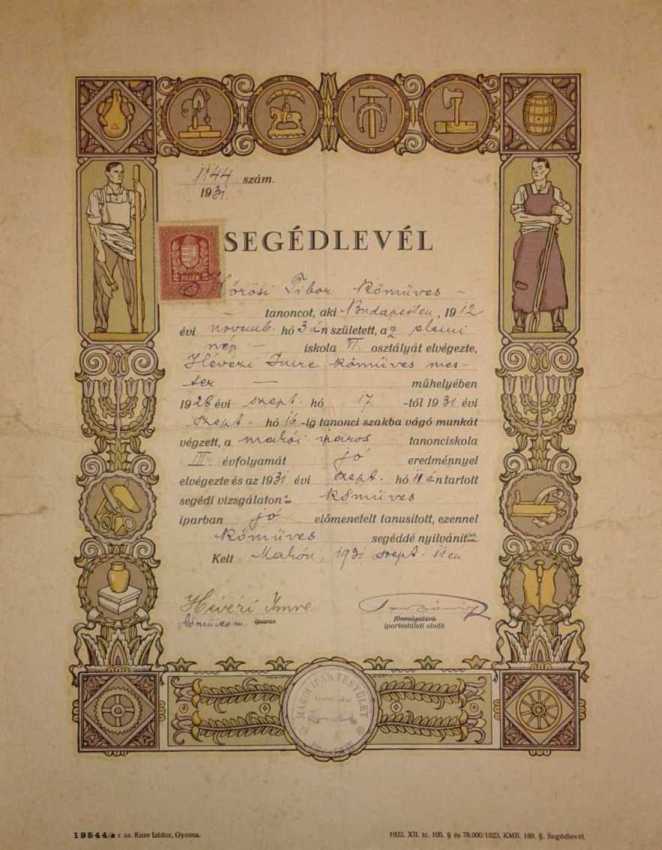 1144 szám.
1931
SEGÉDLEVÉL
Kőrösi Tibor kőműves –
– tanoncot, aki Budapesten, 1912
évi novemb. hó 3 án született, a z elemi
nép – iskola VI. osztályát elvégezte,
Hévézi Imre kőműves mes-
ter – műhelyében
1928 évi szept. hó 17 -től 1931 évi
szept. hó 16-ig tanonci szakba vágó munkát
végzett, a makói iparos tanonciskola
III évfolyamát jó eredménnyel
elvégezte és az 1931 évi szept. hó 11 én tartott
segédi vizsgálaton a kőműves
iparban jó előmenetelt tanusított, ezennel
kőműves segéddé nyilvánít
Kelt Makón, 1931 szept. 11 én
Hévézi Imre
kőműves m. iparos
ipartestületi elnök
MAKÓI IPARTESTÜLET
19544/a r. sz. Kner Izidor, Gyoma.
1922. XII. tc. 105. § és 78.000/1923. KMR. 189. §. Segédlevél.